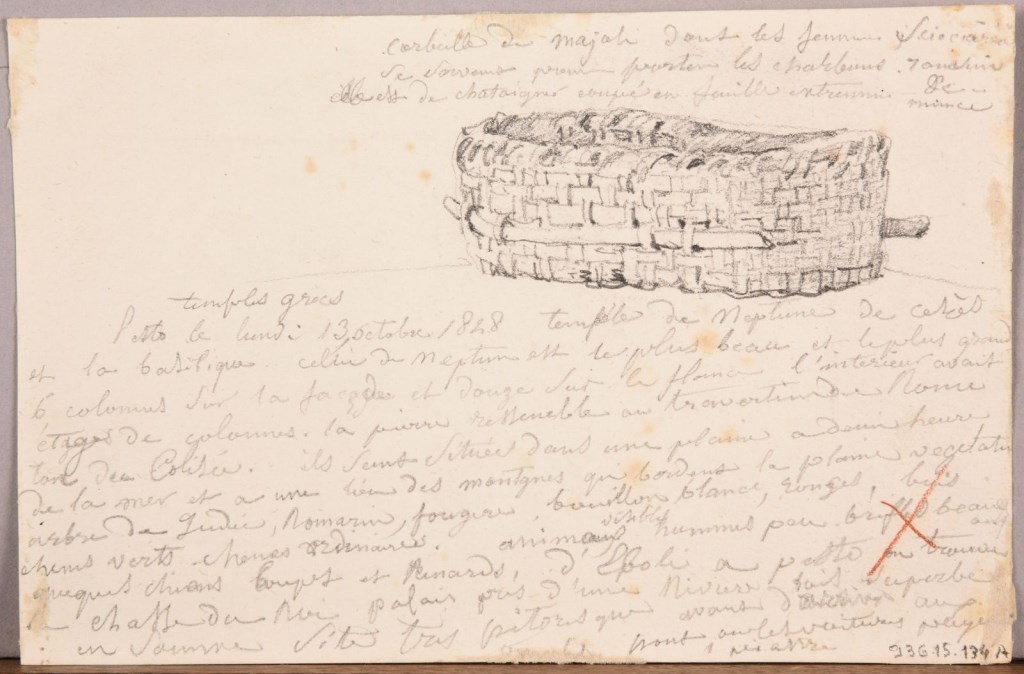 corbeille de majoli dont les femme
se servent pour porter les charbons
de chataignier coupé en feuille
mince
temples grecs
Pesto le lundi 13 octobre 1828 temple de Neptune de cérès
et la basilique. celui de Neptune est le plus beau et le plus grand
6 colonnes sur la façade et douze sur le flanc l'interieur avait
étages de colonnes. la pierre ressemble au travertin de Rome
Colisée. ils sont situées dans une plaine a demi heure
de la mer et a une lieu des montagnes qui bordent la plaine vegetation
arbre de Judée, Romarin, fougere. bouillon blanc, ronces, bois
chenes verts. chenes ordinaires. animaux visibles hommes peu
quelques chiens Loups et Renards, d'Eboli a pesto on trouve
la chasse du Roi palais près d'une Riviere superbe
en somme site très pitoresque avant d'arriver au
pont les voitures
236.15.134 A